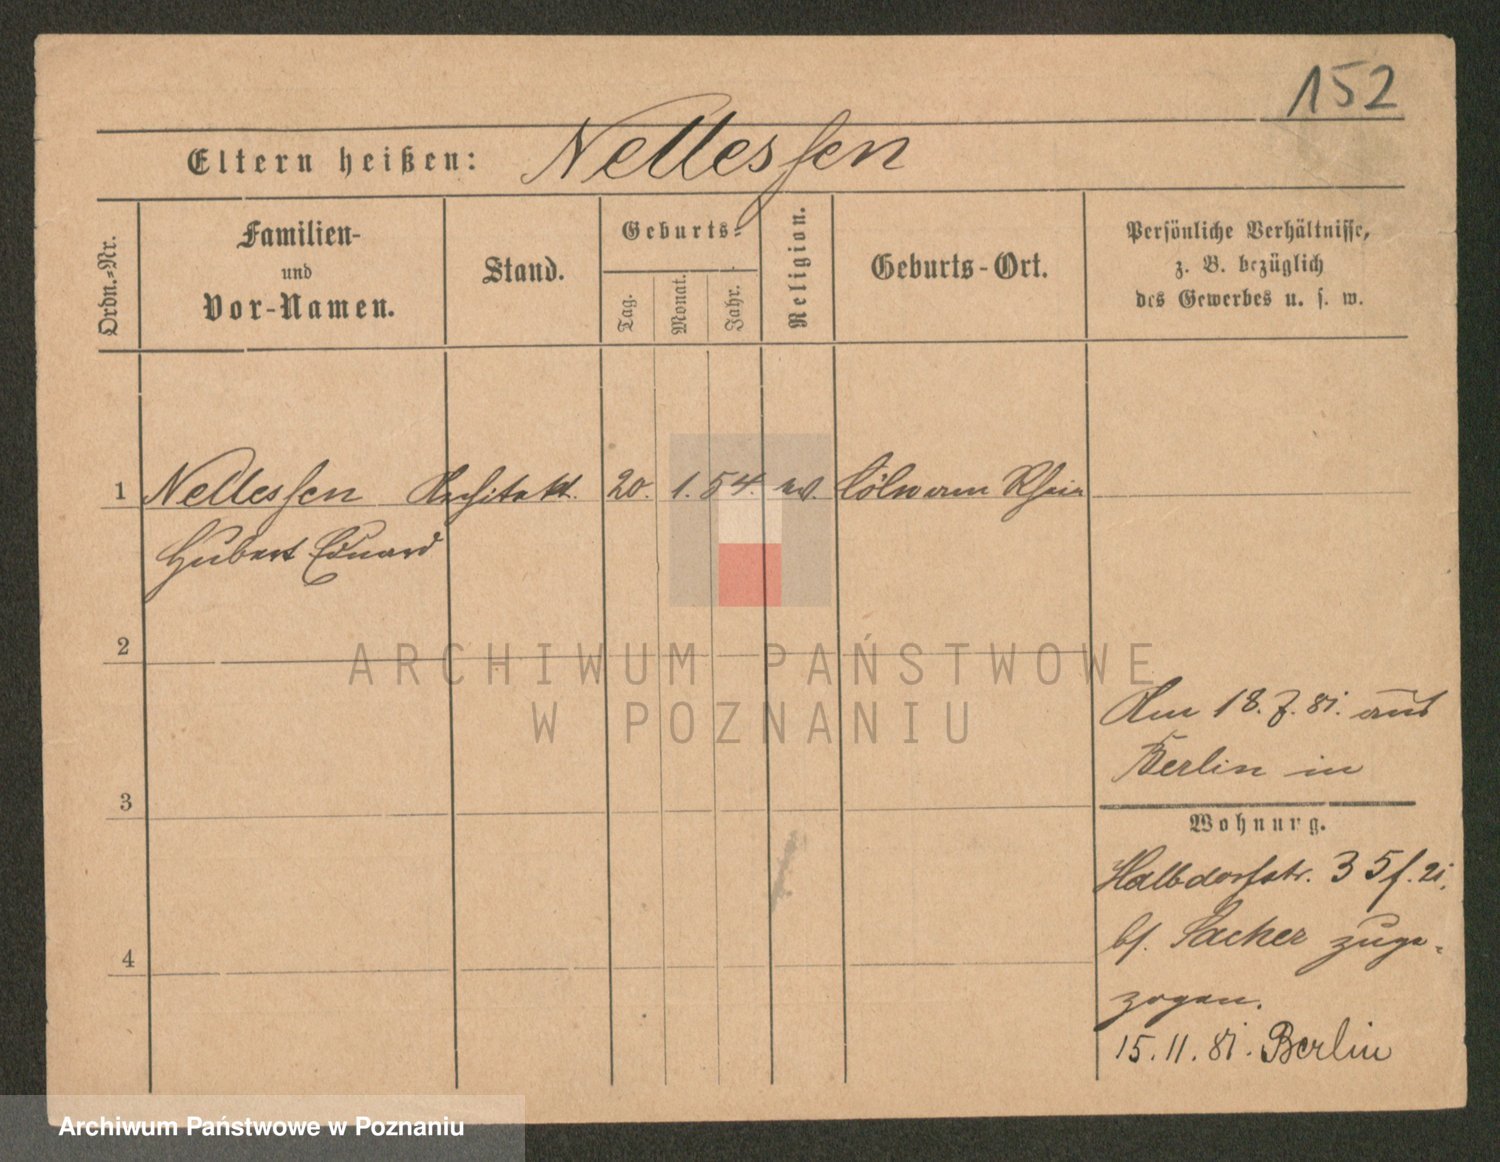 152
Eltern heißen: Nellessen
Ordn.-Nr.
Familien-
und
Vor-Namen.
Stand.
Geburts-
Tag.
Monat.
Jahr.
Religion.
Geburts-Ort.
Persönliche Verhältnisse,
z. B. bezüglich
des Gewerbes u. s. w.
1 Nellessen Architekt. 20. 1. 54. ev. Cöln am Rhein
Hubert Eduard
2
ARCHIWUM PAŃSTWOWE
W POZNANIU
Am 18. 7. 81. aus
Berlin in
3
Wohnung.
Halbdorfstr. 35
b/. Sacker zuge-
4
zogen.
15. 11. 81. Berlin
Archiwum Państwowe w Poznaniu